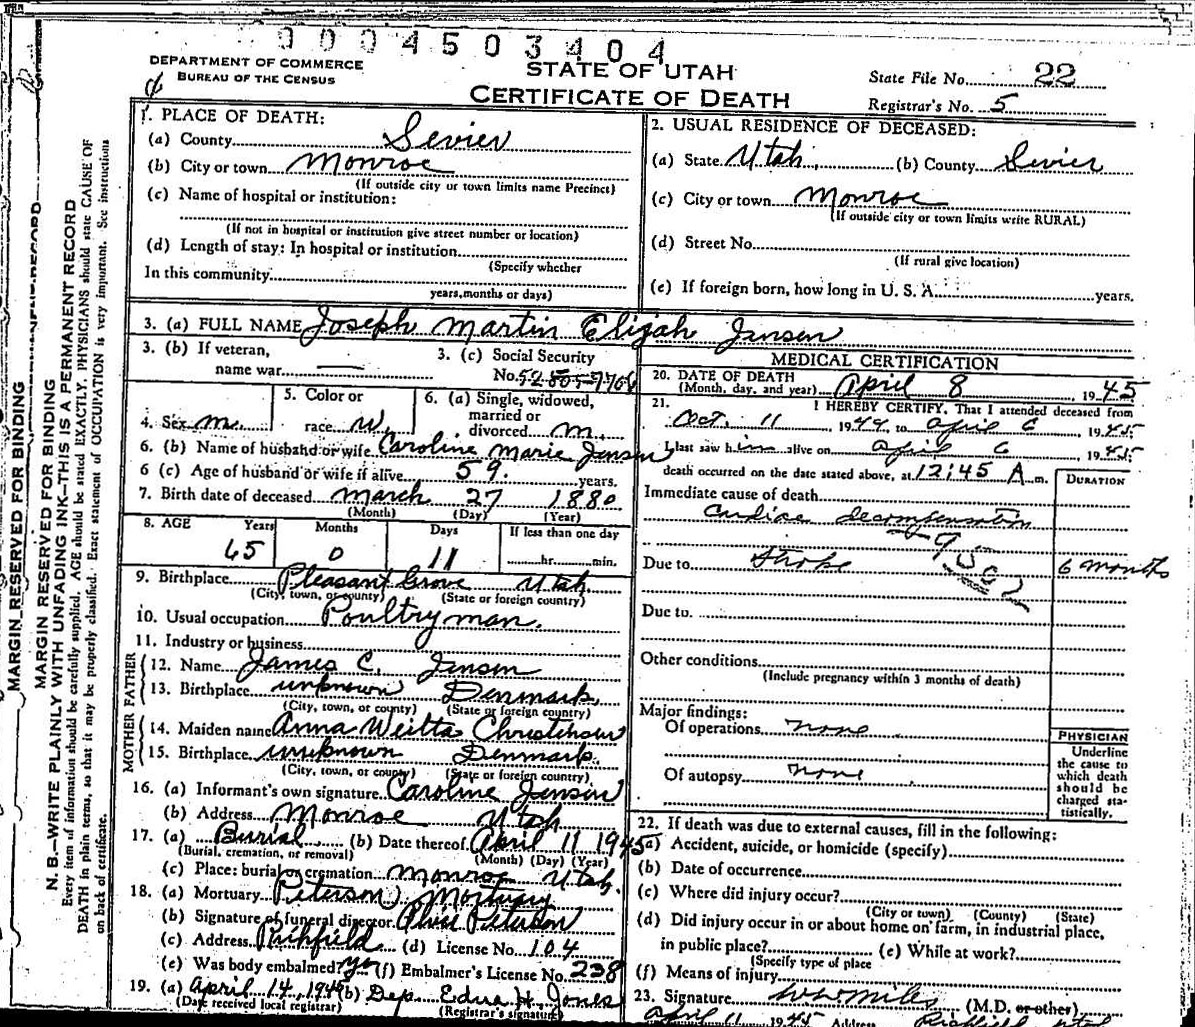 0004503404
DEPARTMENT OF COMMERCE
BUREAU OF THE CENSUS
STATE OF UTAH
CERTIFICATE OF DEATH
State File No. 22
Registrar's No. 5
MARGIN RESERVED FOR BINDING
MARGIN RESERVED FOR BINDING
N. B.—WRITE PLAINLY WITH UNFADING INK—THIS IS A PERMANENT RECORD
Every item of information should be carefully supplied. AGE should be stated EXACTLY. PHYSICIANS should state CAUSE OF
DEATH in plain terms, so that it may be properly classified. Exact statement of OCCUPATION is very important. See instructions
on back of certificate.
1. PLACE OF DEATH:
(a) County Sevier
(b) City or town Monroe
(If outside city or town limits name Precinct)
(c) Name of hospital or institution:
(If not in hospital or institution give street number or location)
(d) Length of stay: In hospital or institution
(Specify whether
In this community
years, months or days)
2. USUAL RESIDENCE OF DECEASED:
(a) State Utah (b) County Sevier
(c) City or town Monroe
(If outside city or town limits write RURAL)
(d) Street No.
(If rural give location)
(e) If foreign born, how long in U. S. A. years.
3. (a) FULL NAME Joseph Martin Elijah Jensen
3. (b) If veteran, name war —
3. (c) Social Security No.
4. Sex M. 5. Color or race W. 6. (a) Single, widowed, married or divorced M.
6. (b) Name of husband or wife Caroline Marie Jensen
6 (c) Age of husband or wife if alive 59 years.
7. Birth date of deceased March 27 1880
(Month) (Day) (Year)
8. AGE Years Months Days If less than one day
65 0 11 hr. min.
9. Birthplace Pleasant Grove Utah
(City, town, or county) (State or foreign country)
10. Usual occupation Poultry man.
11. Industry or business
FATHER
12. Name James C. Jensen
13. Birthplace unknown Denmark
(City, town, or county) (State or foreign country)
MOTHER
14. Maiden name Anna
15. Birthplace unknown Denmark.
(City, town, or county) (State or foreign country)
16. (a) Informant's own signature Caroline Jensen
(b) Address Monroe Utah
17. (a) Burial (b) Date thereof April 11 1945
(Burial, cremation, or removal) (Month) (Day) (Year)
(c) Place: burial or cremation Monroe Utah.
18. (a) Mortuary Peterson Mortuary
(b) Signature of funeral director Peterson
(c) Address Richfield (d) License No. 104
(e) Was body embalmed? yes (f) Embalmer's License No. 238
19. (a) April 14, 194 (b) Dep. Edna H. Jones
(Date received local registrar) (Registrar's signature)
MEDICAL CERTIFICATION
20. DATE OF DEATH
(Month, day, and year) April 8, 1945
21. I HEREBY CERTIFY, That I attended deceased from
Oct. 11, 1944, to April 6, 1945
I last saw him alive on April 6 1945
death occurred on the date stated above, at 12:45 A m.
DURATION
Immediate cause of death
Cardiac decompensation
Due to Stroke 6 months
Due to
Other conditions
(Include pregnancy within 3 months of death)
Major findings:
Of operations none
Of autopsy none
PHYSICIAN
Underline
the cause to
which death
should be
charged sta-
tistically.
22. If death was due to external causes, fill in the following:
(a) Accident, suicide, or homicide (specify)
(b) Date of occurrence
(c) Where did injury occur?
(City or town) (County) (State)
(d) Did injury occur in or about home on farm, in industrial place,
in public place? (e) While at work?
(Specify type of place
(f) Means of injury
23. Signature Miles (M.D. or other)
April 11 1945 Address Richfield Utah